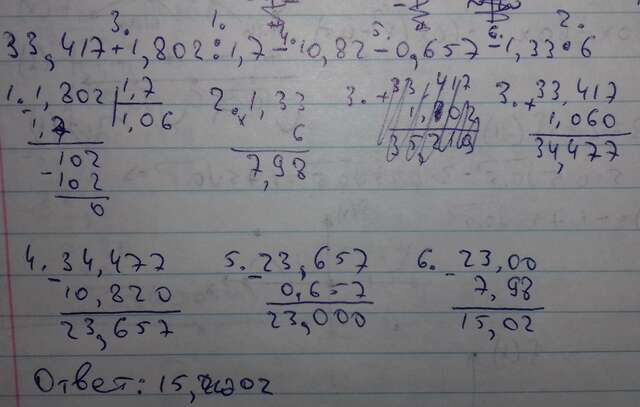 3. 1. 4. 5. 6. 2.
33,417+1,802:1,7-10,82-0,657-1,33·6
1. 1,802 | 1,7 2. 1,33 3. + 33,417 3. + 33,417
- 1,7 1,06 x 6 1,802 1,060
102 7,98 35,219 34,477
- 102
0
4. 34,477 5. 23,657 6. 23,00
- 10,820 - 0,657 - 7,98
23,657 23,000 15,02
Ответ: 15,02